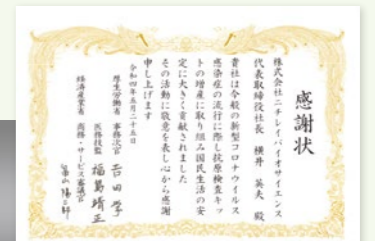 感謝状
株式会社ニチレイバイオサイエンス
代表取締役社長 横井 英夫 殿
貴社は今般の新型コロナウイルス
感染症の流行に際し抗原検査キッ
トの増産に取り組み国民生活の安
定に大きく貢献されました
その活動に敬意を表し心から感謝
申し上げます
令和四年五月二十五日
厚生労働省 事務次官 吉田 学
医務技監 福島 靖正
経済産業省 商務・サービス審議官